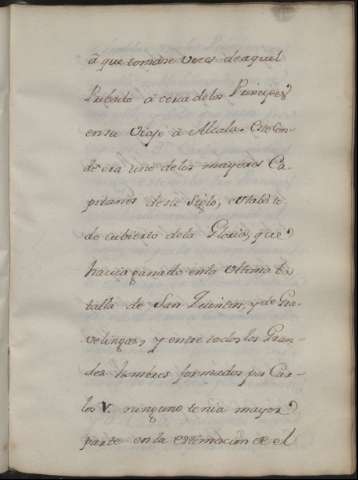 á que tomase veces de aquel
Prelado á cerca de los Principes
en su viaje á Alcala. Este Con-
de era uno de los mayores Ca-
pitanes de su siglo, estaba
de cubierto de la Gloria, que
havia ganado en la ultima Ba-
talla de San Quintin, y de Gra-
velingas, y entre todos los Gran-
des hombres formados por Car-
los V. ninguno tenia mayor
parte en la estimacion de el